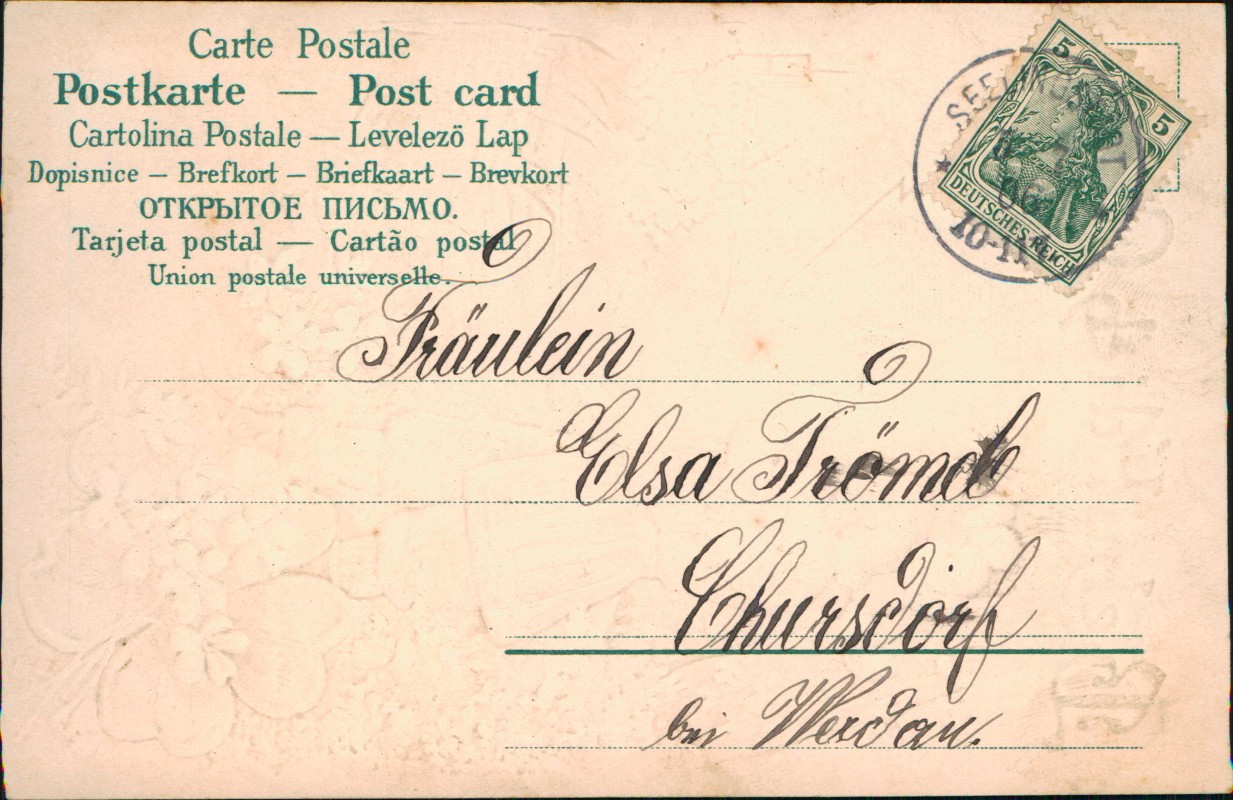 Carte Postale
Postkarte — Post card
Cartolina Postale — Levelezö Lap
Dopisnice — Brefkort — Briefkaart — Brevkort
ОТКРЫТОЕ ПИСЬМО.
Tarjeta postal — Cartão postal
Union postale universelle.
5
5
DEUTSCHES REICH
06
10-11
Fräulein
Elsa
Chursdorf
bei Werdau.